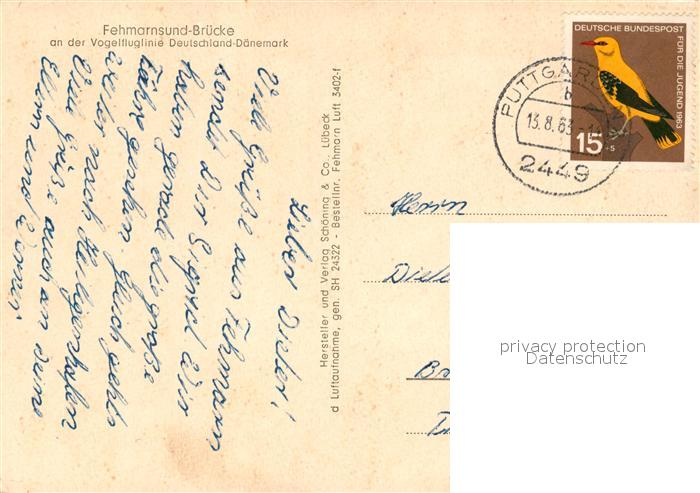 Fehmarnsund-Brücke
an der Vogelfluglinie Deutschland-Dänemark
Lieber Dieter!
Viele Grüße aus Fehmarn
sendet dir Sigrid Wir
haben gerade die große
Fähre gesehen Gleich gehts
weiter nach Heiligenhafen
Viele Grüße auch an deine
Eltern und
Hersteller und Verlag Schöning & Co., Lübeck
d Luftaufnahme, gen. SH 24322 - Bestellnr. Fehmarn Luft 3402-f
DEUTSCHE BUNDESPOST
FÜR DIE JUGEND 1963
15
+5
PUTTGARD
b
13.8.63
2449
Herrn
privacy protection
Datenschutz